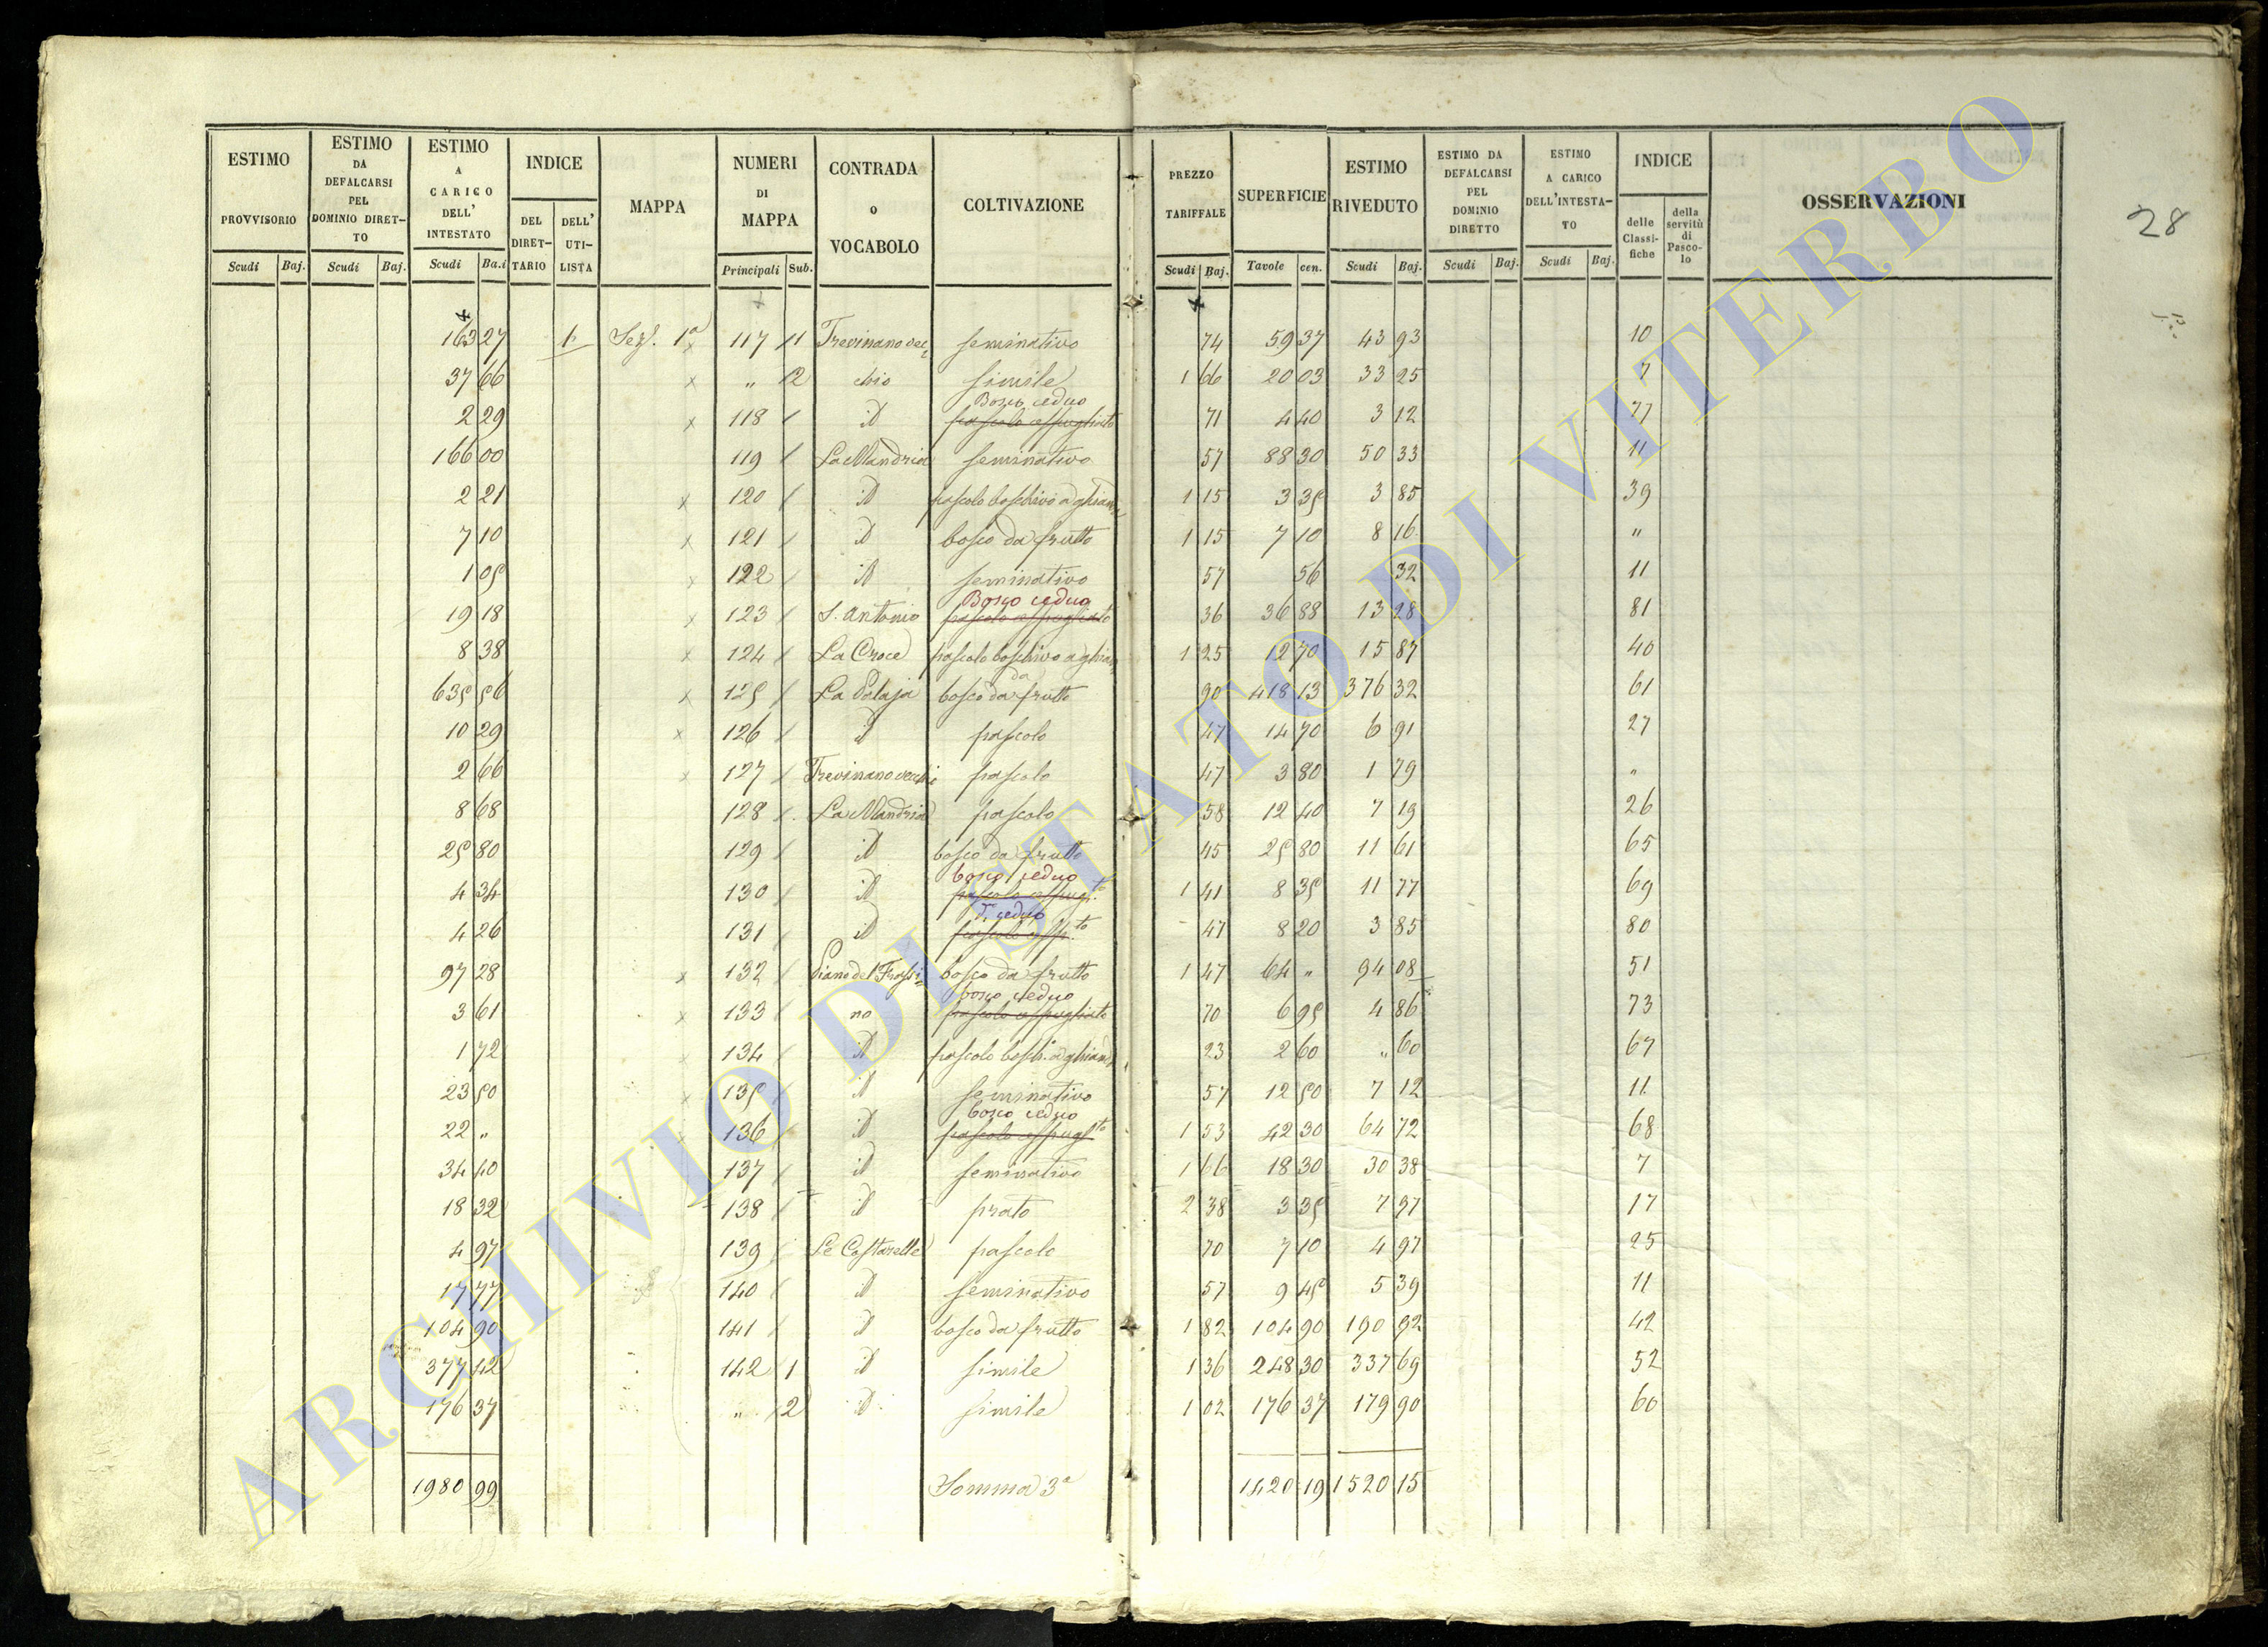 ESTIMO PROVVISORIO | ESTIMO DA DEFALCARSI PEL DOMINIO DIRETTO | ESTIMO A CARICO DELL' INTESTATO | INDICE | MAPPA | NUMERI DI MAPPA | CONTRADA O VOCABOLO | COLTIVAZIONE | PREZZO TARIFFALE | SUPERFICIE | ESTIMO RIVEDUTO | ESTIMO DA DEFALCARSI PEL DOMINIO DIRETTO | ESTIMO A CARICO DELL'INTESTATO | INDICE | OSSERVAZIONI
DEL DIRETTARIO | DELL' UTILISTA | delle Classifiche | della servitù di Pascolo
Scudi | Baj. | Scudi | Baj. | Scudi | Ba.i | Principali | Sub. | Scudi | Baj. | Tavole | cen. | Scudi | Baj. | Scudi | Baj. | Scudi | Baj.
28
163 27 | 1 | Sez. 1a | 117 | 1 | Trevinano vec= | seminativo | 74 | 59 37 | 43 93 | 10
37 66 | " | 2 | chio | simile | 1 66 | 20 03 | 33 25 | 7
Bosco ceduo
2 29 | 118 | id | pascolo cespugliato | 71 | 4 40 | 3 12 | 77
166 00 | 119 | La Mandria | seminativo | 57 | 88 30 | 50 33 | 11
2 21 | 120 | id | pascolo boschivo a ghian | 1 15 | 3 35 | 3 85 | 39
7 10 | 121 | id | bosco da frutto | 1 15 | 7 10 | 8 16 | "
1 05 | 122 | id | seminativo | 57 | 56 | 32 | 11
Bosco ceduo
19 18 | 123 | S. Antonio | pascolo cespugliato | 36 | 36 88 | 13 28 | 81
8 38 | 124 | La Croce | pascolo boschivo a ghian | 1 25 | 12 70 | 15 87 | 40
da
635 56 | 125 | La Palaja | bosco da frutto | 90 | 418 13 | 376 32 | 61
10 29 | 126 | id | pascolo | 47 | 14 70 | 6 91 | 27
2 66 | 127 | Trevinano vecchi | pascolo | 47 | 3 80 | 1 79 | "
8 68 | 128 | La Mandria | pascolo | 58 | 12 40 | 7 19 | 26
25 80 | 129 | id | bosco da frutto | 45 | 25 80 | 11 61 | 65
bosco ceduo
4 34 | 130 | id | pascolo cespug.to | 1 41 | 8 35 | 11 77 | 69
d. ceduo
4 26 | 131 | id | pascolo cesp.to | 47 | 8 20 | 3 85 | 80
97 28 | 132 | Piano del Frassi= | bosco da frutto | 1 47 | 64 " | 94 08 | 51
bosco ceduo
3 61 | 133 | no | pascolo cespugliato | 70 | 6 95 | 4 86 | 73
1 72 | 134 | id | pascolo bosch. a ghian | 23 | 2 60 | " 60 | 67
23 50 | 135 | id | seminativo | 57 | 12 50 | 7 12 | 11
bosco ceduo
22 " | 136 | id | pascolo cespugl.to | 1 53 | 42 30 | 64 72 | 68
34 40 | 137 | id | seminativo | 1 66 | 18 30 | 30 38 | 7
18 32 | 138 | id | prato | 2 38 | 3 35 | 7 97 | 17
4 97 | 139 | Le Costarelle | pascolo | 70 | 7 10 | 4 97 | 25
17 77 | 140 | id | seminativo | 57 | 9 45 | 5 39 | 11
104 90 | 141 | id | bosco da frutto | 1 82 | 104 90 | 190 92 | 42
377 42 | 142 | 1 | id | simile | 1 36 | 248 30 | 337 69 | 52
176 37 | " | 2 | id | simile | 1 02 | 176 37 | 179 90 | 60
1980 99 | Somma 3a | 1420 19 | 1520 15
ARCHIVIO DI STATO DI VITERBO